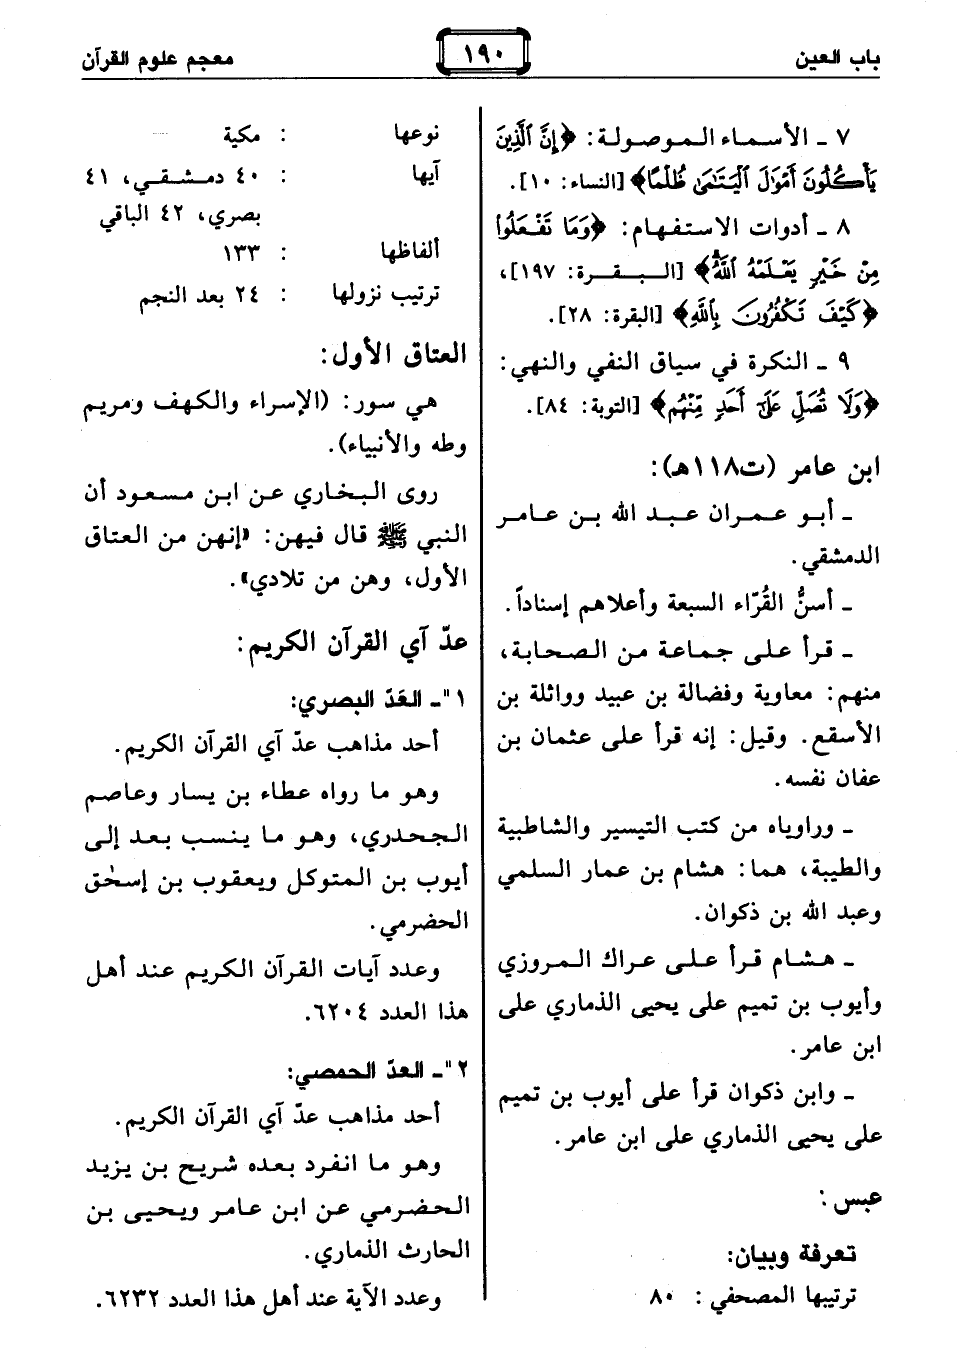 باب العين
١٩٠
معجم علوم القرآن
٧ ـ الأسماء الموصولة: ﴿إِنَّ ٱلَّذِينَ
يَأْكُلُونَ أَمْوَٰلَ ٱلْيَتَٰمَىٰ ظُلْمًا﴾ [النساء: ١٠].
٨ ـ أدوات الاستفهام: ﴿وَمَا تَفْعَلُوا۟
مِنْ خَيْرٍ يَعْلَمْهُ ٱللَّهُ﴾ [البقرة: ١٩٧]،
﴿كَيْفَ تَكْفُرُونَ بِٱللَّهِ﴾ [البقرة: ٢٨].
٩ ـ النكرة في سياق النفي والنهي:
﴿وَلَا تُصَلِّ عَلَىٰٓ أَحَدٍ مِّنْهُم﴾ [التوبة: ٨٤].
ابن عامر (ت١١٨هـ):
ـ أبو عمران عبد الله بن عامر
الدمشقي.
ـ أسنُّ القُرّاء السبعة وأعلاهم إسناداً.
ـ قرأ على جماعة من الصحابة،
منهم: معاوية وفضالة بن عبيد وواثلة بن
الأسقع. وقيل: إنه قرأ على عثمان بن
عفان نفسه.
ـ وراوياه من كتب التيسير والشاطبية
والطيبة، هما: هشام بن عمار السلمي
وعبد الله بن ذكوان.
ـ هشام قرأ على عراك المروزي
وأيوب بن تميم على يحيى الذماري على
ابن عامر.
ـ وابن ذكوان قرأ على أيوب بن تميم
على يحيى الذماري على ابن عامر.
عبس:
تعرفة وبيان:
ترتيبها المصحفي : ٨٠
نوعها : مكية
آيها : ٤٠ دمشقي، ٤١
بصري، ٤٢ الباقي
ألفاظها : ١٣٣
ترتيب نزولها : ٢٤ بعد النجم
العتاق الأول:
هي سور: (الإسراء والكهف ومريم
وطه والأنبياء).
روى البخاري عن ابن مسعود أن
النبي ﷺ قال فيهن: «إنهن من العتاق
الأول، وهن من تلادي».
عدّ آي القرآن الكريم:
١" ـ العَدّ البصري:
أحد مذاهب عدّ آي القرآن الكريم.
وهو ما رواه عطاء بن يسار وعاصم
الجحدري، وهو ما ينسب بعد إلى
أيوب بن المتوكل ويعقوب بن إسحٰق
الحضرمي.
وعدد آيات القرآن الكريم عند أهل
هذا العدد ٦٢٠٤.
٢" ـ العدّ الحمصي:
أحد مذاهب عدّ آي القرآن الكريم.
وهو ما انفرد بعده شريح بن يزيد
الحضرمي عن ابن عامر ويحيى بن
الحارث الذماري.
وعدد الآية عند أهل هذا العدد ٦٢٣٢.